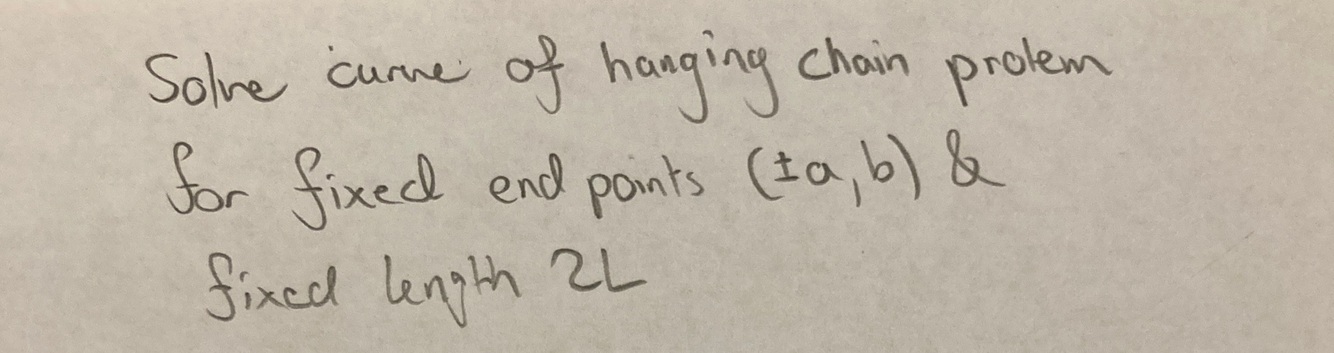 Solve curve of hanging chain prolem
for fixed end points (±a, b) &
fixed length 2L